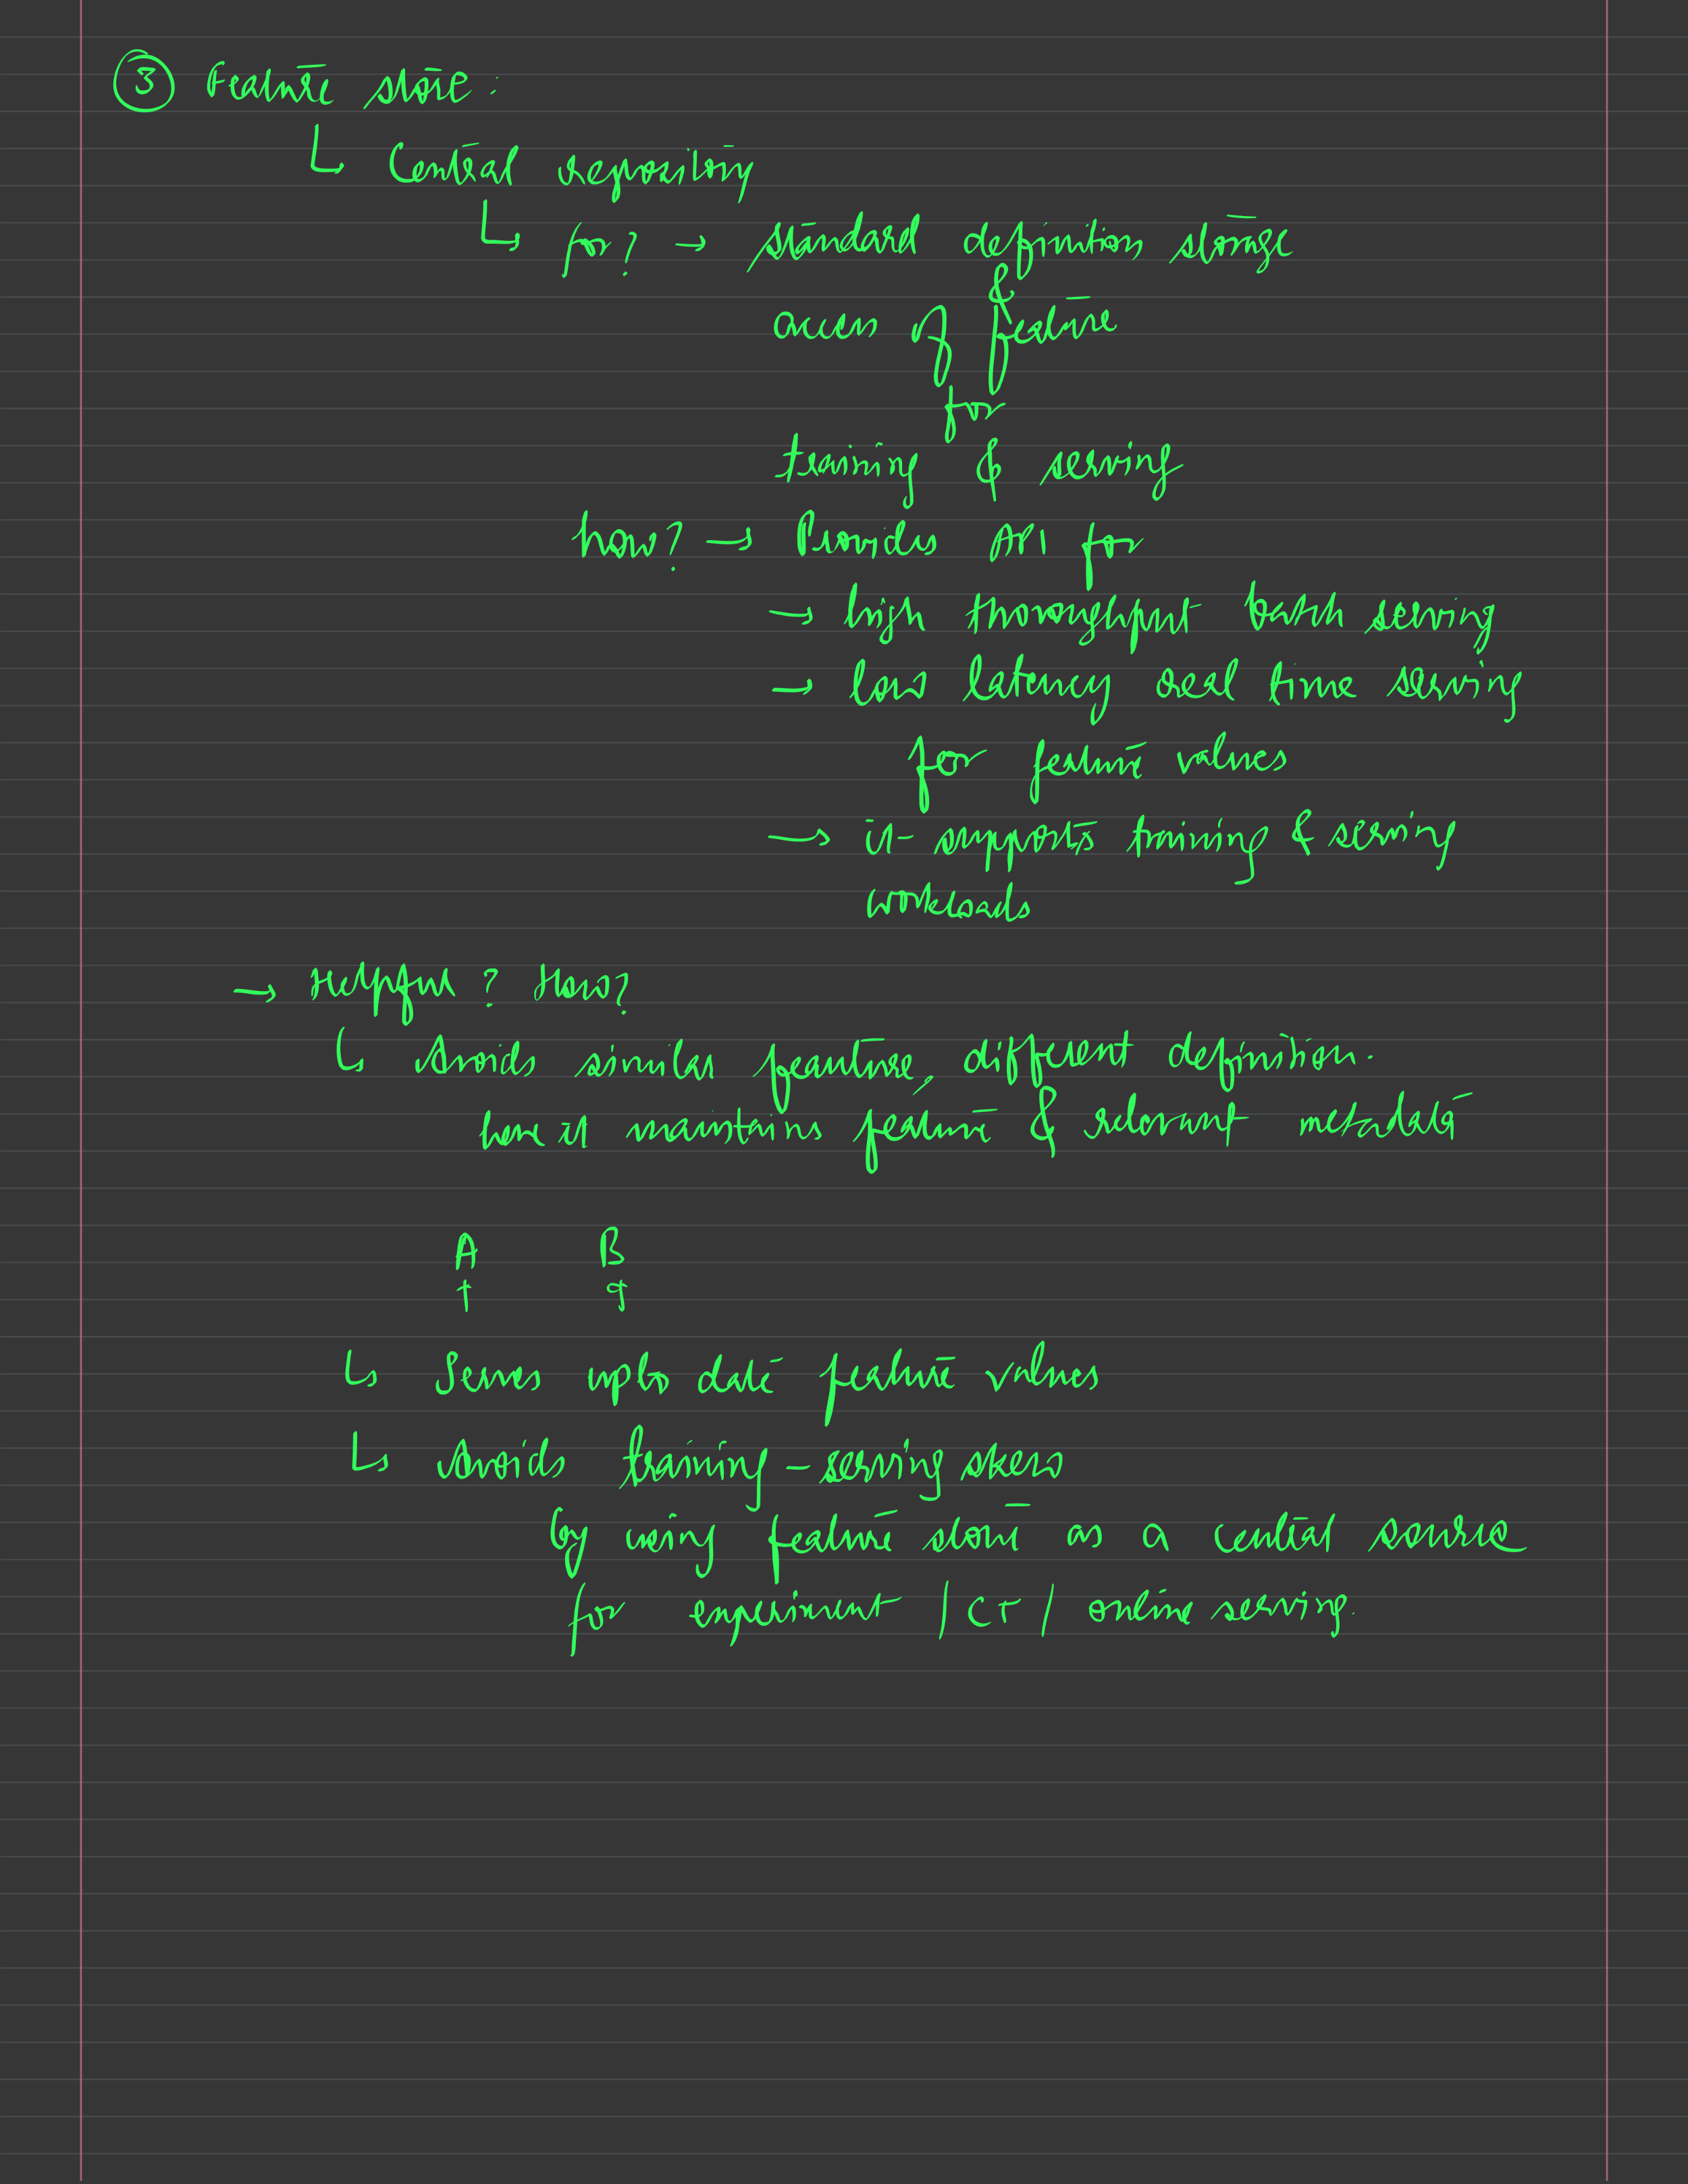 ③ Feature store:
↳ Central repository
↳ for? → standard definition storage
& access of feature
for
training & serving
how? → Provides API for
→ high throughput batch serving
→ low latency real time serving
for feature values
→ it supports training & serving
workloads
→ Helpful? How?
↳ Avoids similar feature, different definition.
here it maintains feature & relevant metadata
A B
↳ Serves upto date feature values
↳ avoids training-serving skew
by using feature store as a central source
for experiment / CT / online serving.